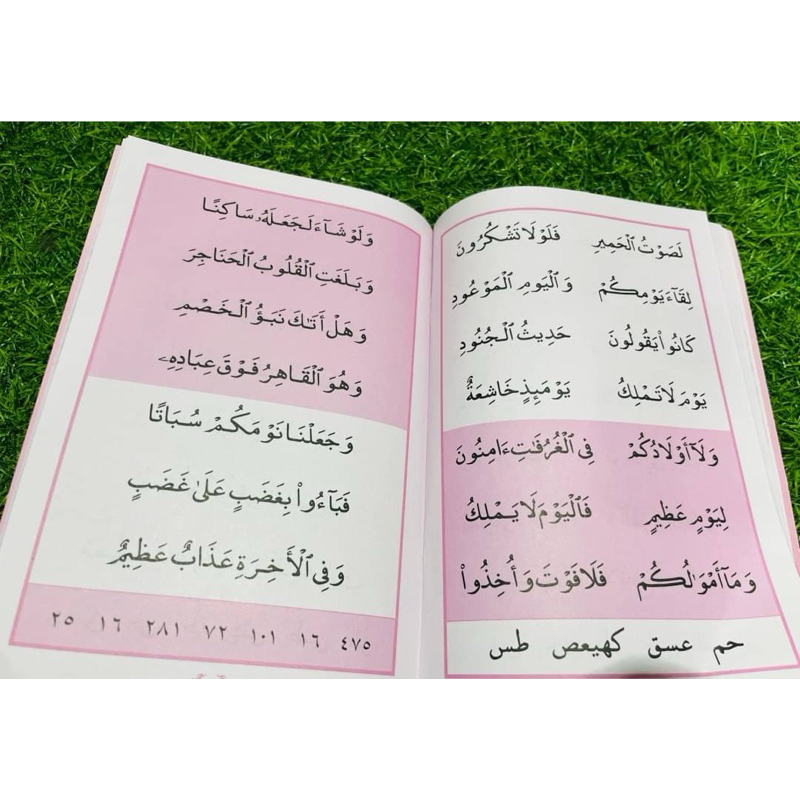 لَصَوْتُ ٱلْحَمِيرِ فَلَوْلَا تَشْكُرُونَ
لِقَآءَ يَوْمِكُمْ وَٱلْيَوْمِ ٱلْمَوْعُودِ
كَانُوا۟ يَقُولُونَ حَدِيثُ ٱلْجُنُودِ
يَوْمَ لَا تَمْلِكُ يَوْمَئِذٍ خَاشِعَةٌ
وَلَآ أَوْلَادُكُمْ فِى ٱلْغُرُفَٰتِ ءَامِنُونَ
لِيَوْمٍ عَظِيمٍ فَٱلْيَوْمَ لَا يَمْلِكُ
وَمَآ أَمْوَٰلُكُمْ فَلَا فَوْتَ وَأُخِذُوا۟
حم عسق كهيعص طس
وَلَوْ شَآءَ لَجَعَلَهُۥ سَاكِنًا
وَبَلَغَتِ ٱلْقُلُوبُ ٱلْحَنَاجِرَ
وَهَلْ أَتَىٰكَ نَبَؤُ ٱلْخَصْمِ
وَهُوَ ٱلْقَاهِرُ فَوْقَ عِبَادِهِۦ
وَجَعَلْنَا نَوْمَكُمْ سُبَاتًا
فَبَآءُو بِغَضَبٍ عَلَىٰ غَضَبٍ
وَفِى ٱلْأَخِرَةِ عَذَابٌ عَظِيمٌ
٤٧٥ ١٦ ١٠١ ٧٢ ٢٨١ ١٦ ٢٥